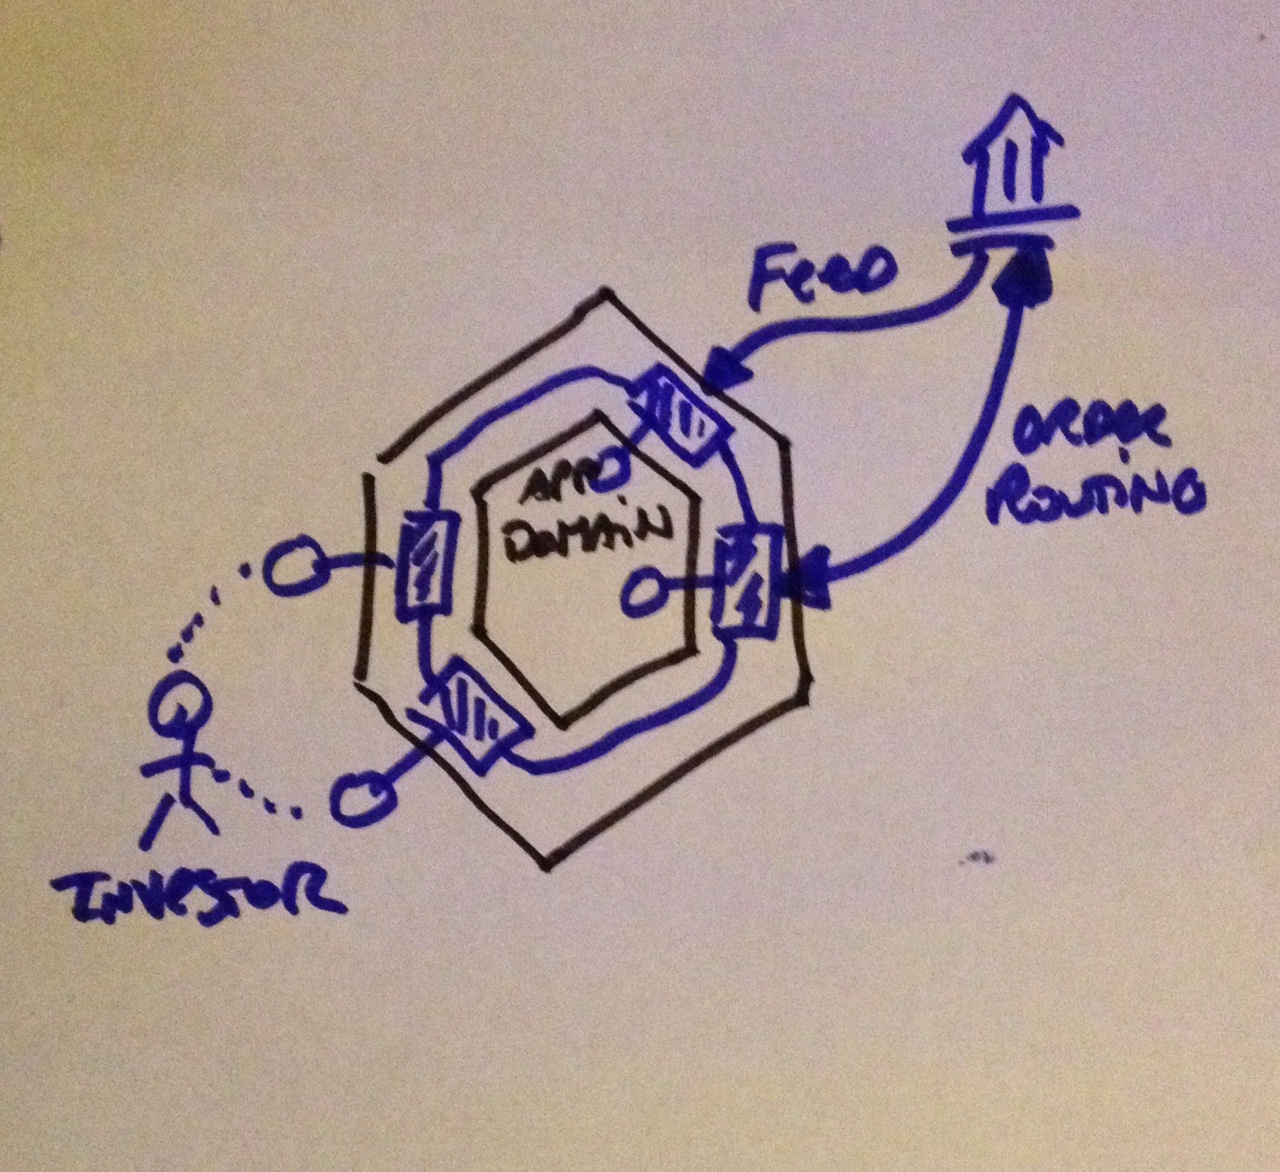 FEED
ORDER
ROUTING
APP
DOMAIN
INVESTOR